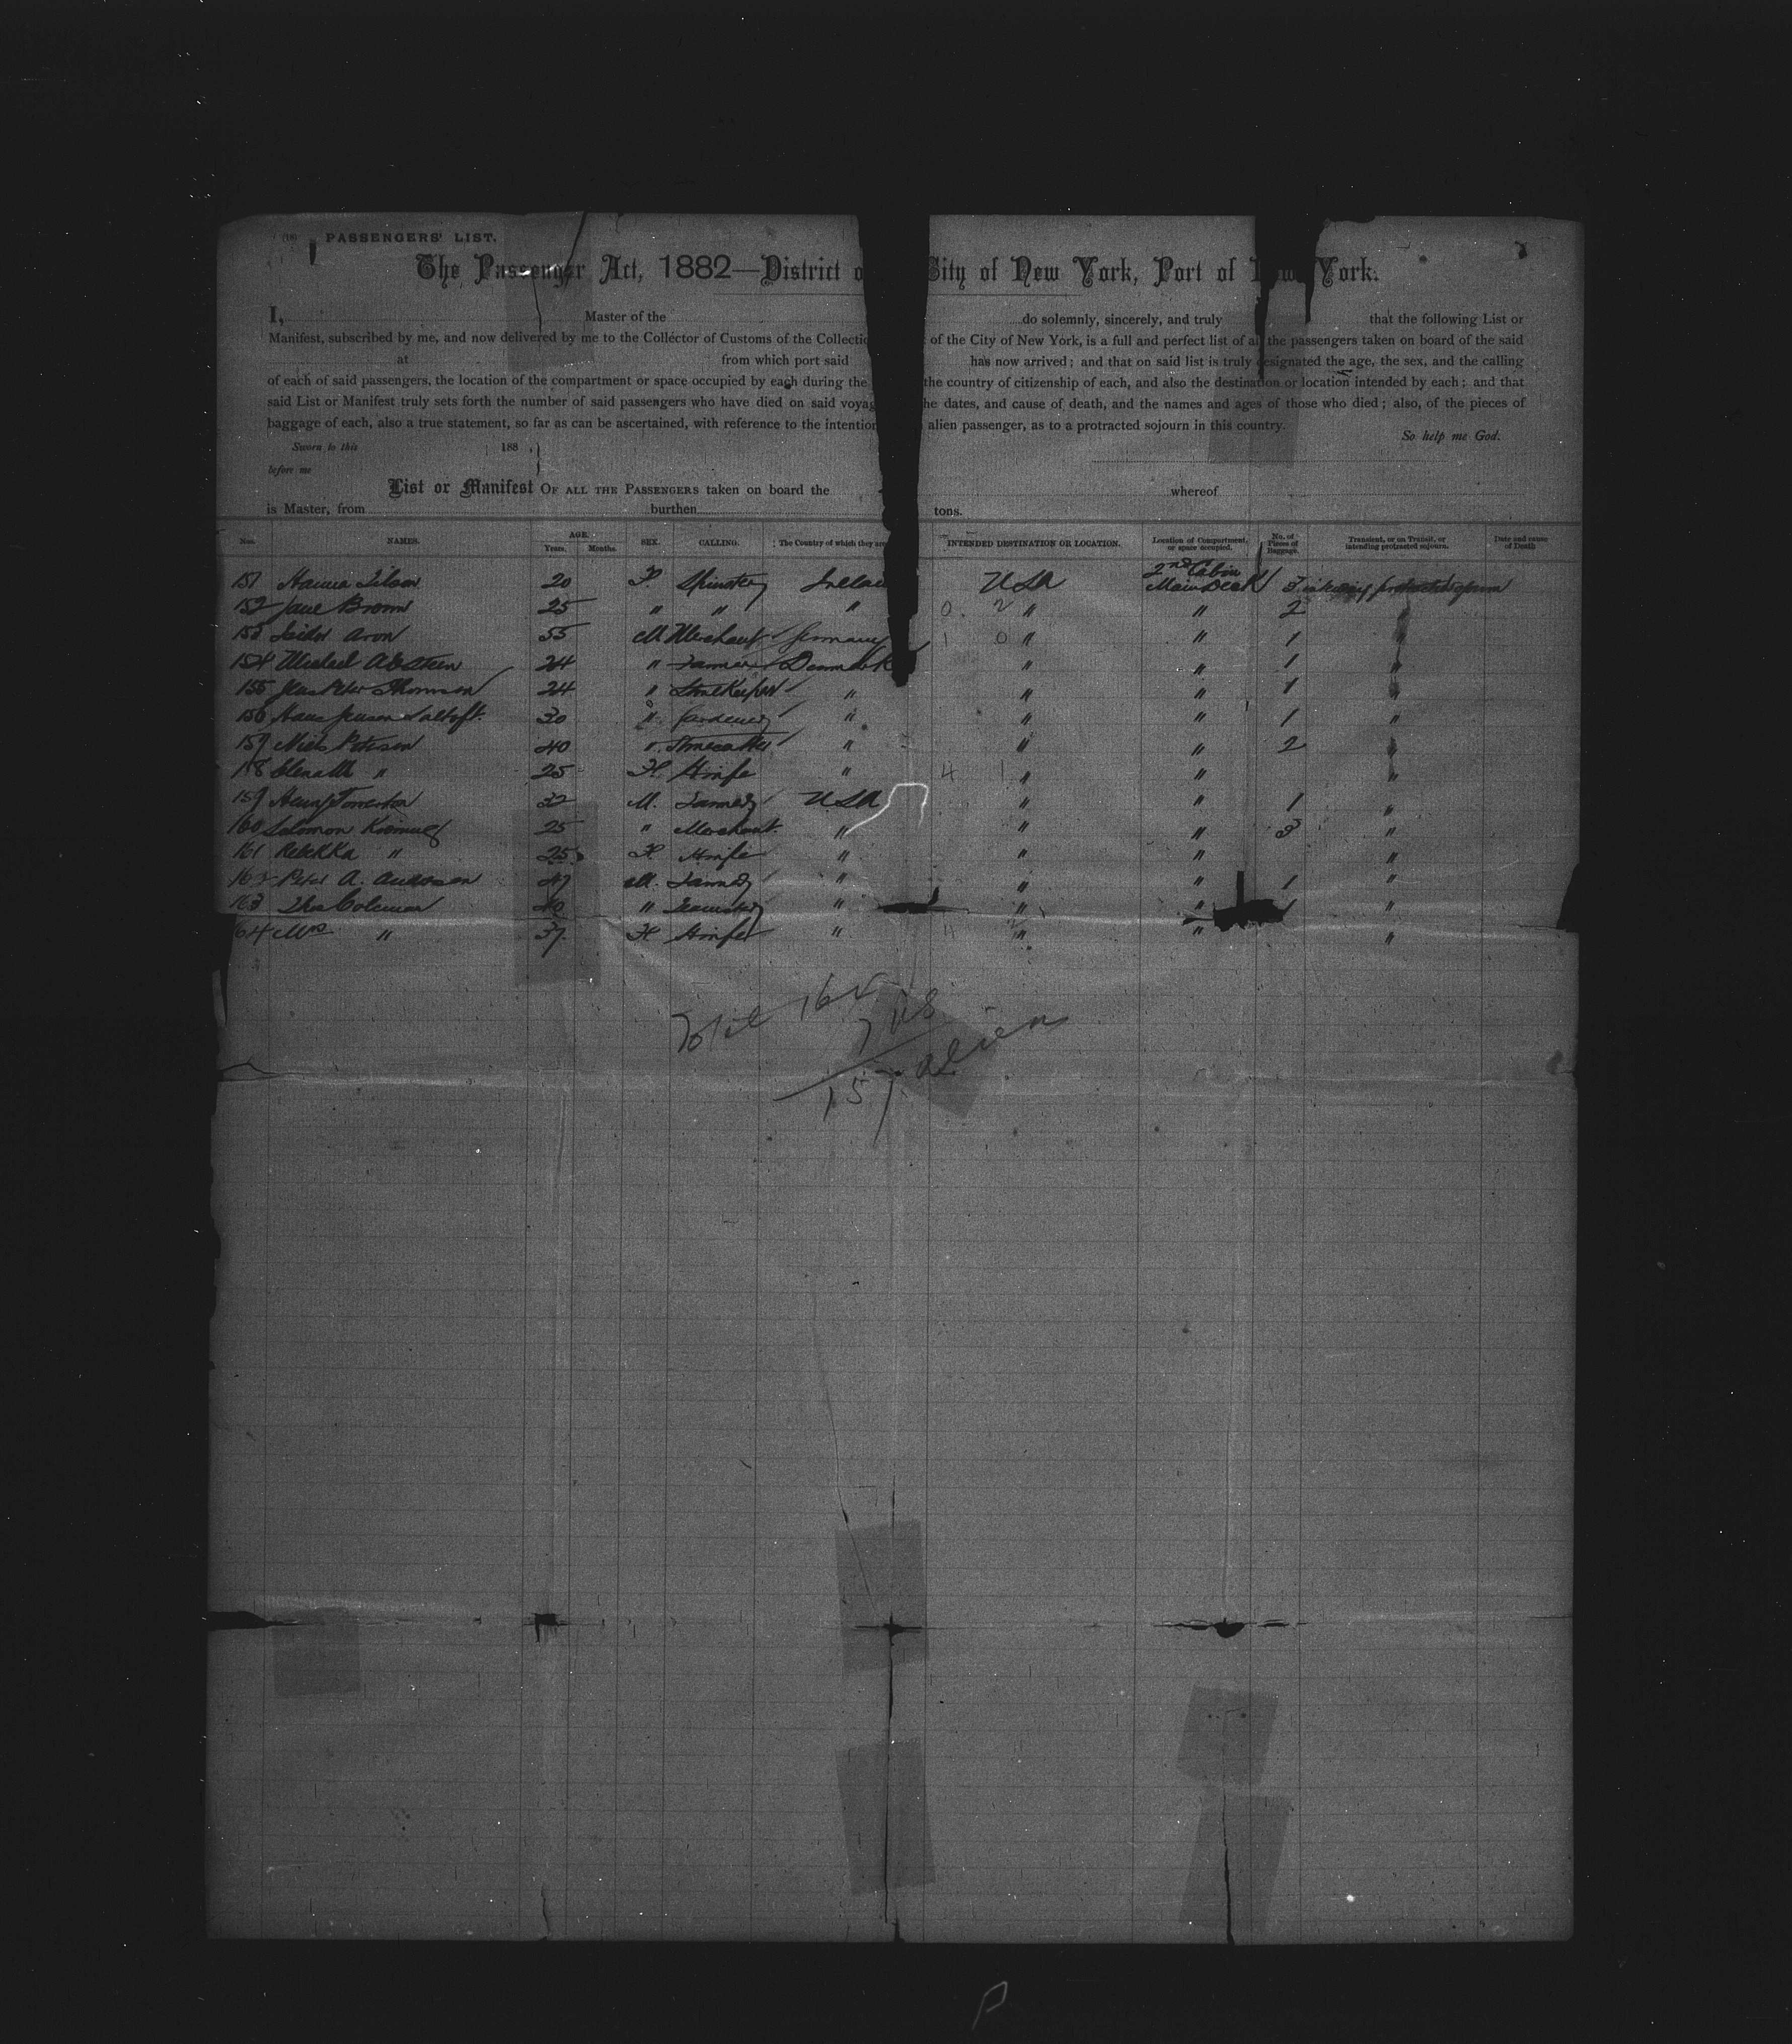 PASSENGERS' LIST.
The Passenger Act, 1882—District o City of New York, Port of New York.
I, Master of the do solemnly, sincerely, and truly that the following List or
Manifest, subscribed by me, and now delivered by me to the Collector of Customs of the Collectio of the City of New York, is a full and perfect list of all the passengers taken on board of the said
at from which port said has now arrived; and that on said list is truly designated the age, the sex, and the calling
of each of said passengers, the location of the compartment or space occupied by each during the the country of citizenship of each, and also the destination or location intended by each; and that
said List or Manifest truly sets forth the number of said passengers who have died on said voyag he dates, and cause of death, and the names and ages of those who died; also, of the pieces of
baggage of each, also a true statement, so far as can be ascertained, with reference to the intention alien passenger, as to a protracted sojourn in this country.
So help me God.
Sworn to this 188
before me
List or Manifest OF ALL THE PASSENGERS taken on board the whereof
is Master, from burthen tons.
Nos. NAMES. AGE. Years. Months. SEX. CALLING. The Country of which they are INTENDED DESTINATION OR LOCATION. Location of Compartment, or space occupied. No. of Pieces of Baggage. Transient, or in Transit, or intending protracted sojourn. Date and cause of Death
151 Hanna 20 F. Spinster Irelan USA 2nd Cabin Main Deck 3 intending protracted sojourn
152 Jane Brown 25 " " " 0 2 " " 2 "
153 Isidor Aron 55 M Merchant Germany 1 0 " " 1 "
154 Michael 24 " Farmer Denmark " " 1 "
155 Jens Peter Thomsen 24 " Storekeeper " " " 1 "
156 Hans Jensen 30 " Gardener " " " 1 "
157 Niels Petersen 40 " Stonecutter " " " 2 "
158 " 25 F. Wife " 4 1 " " "
159 Henry 32 M. Farmer USA " " 1 "
160 Solomon 25 " Merchant " " " 3 "
161 Rebekka " 25 F. Wife " " " "
162 Peter A. Anderson 47 M. Farmer " " " 1 "
163 Coleman 40 " " " " 1 "
164 Mrs " 37 F Wife " 4 " " "
Total 164
7 US
157 alien
P